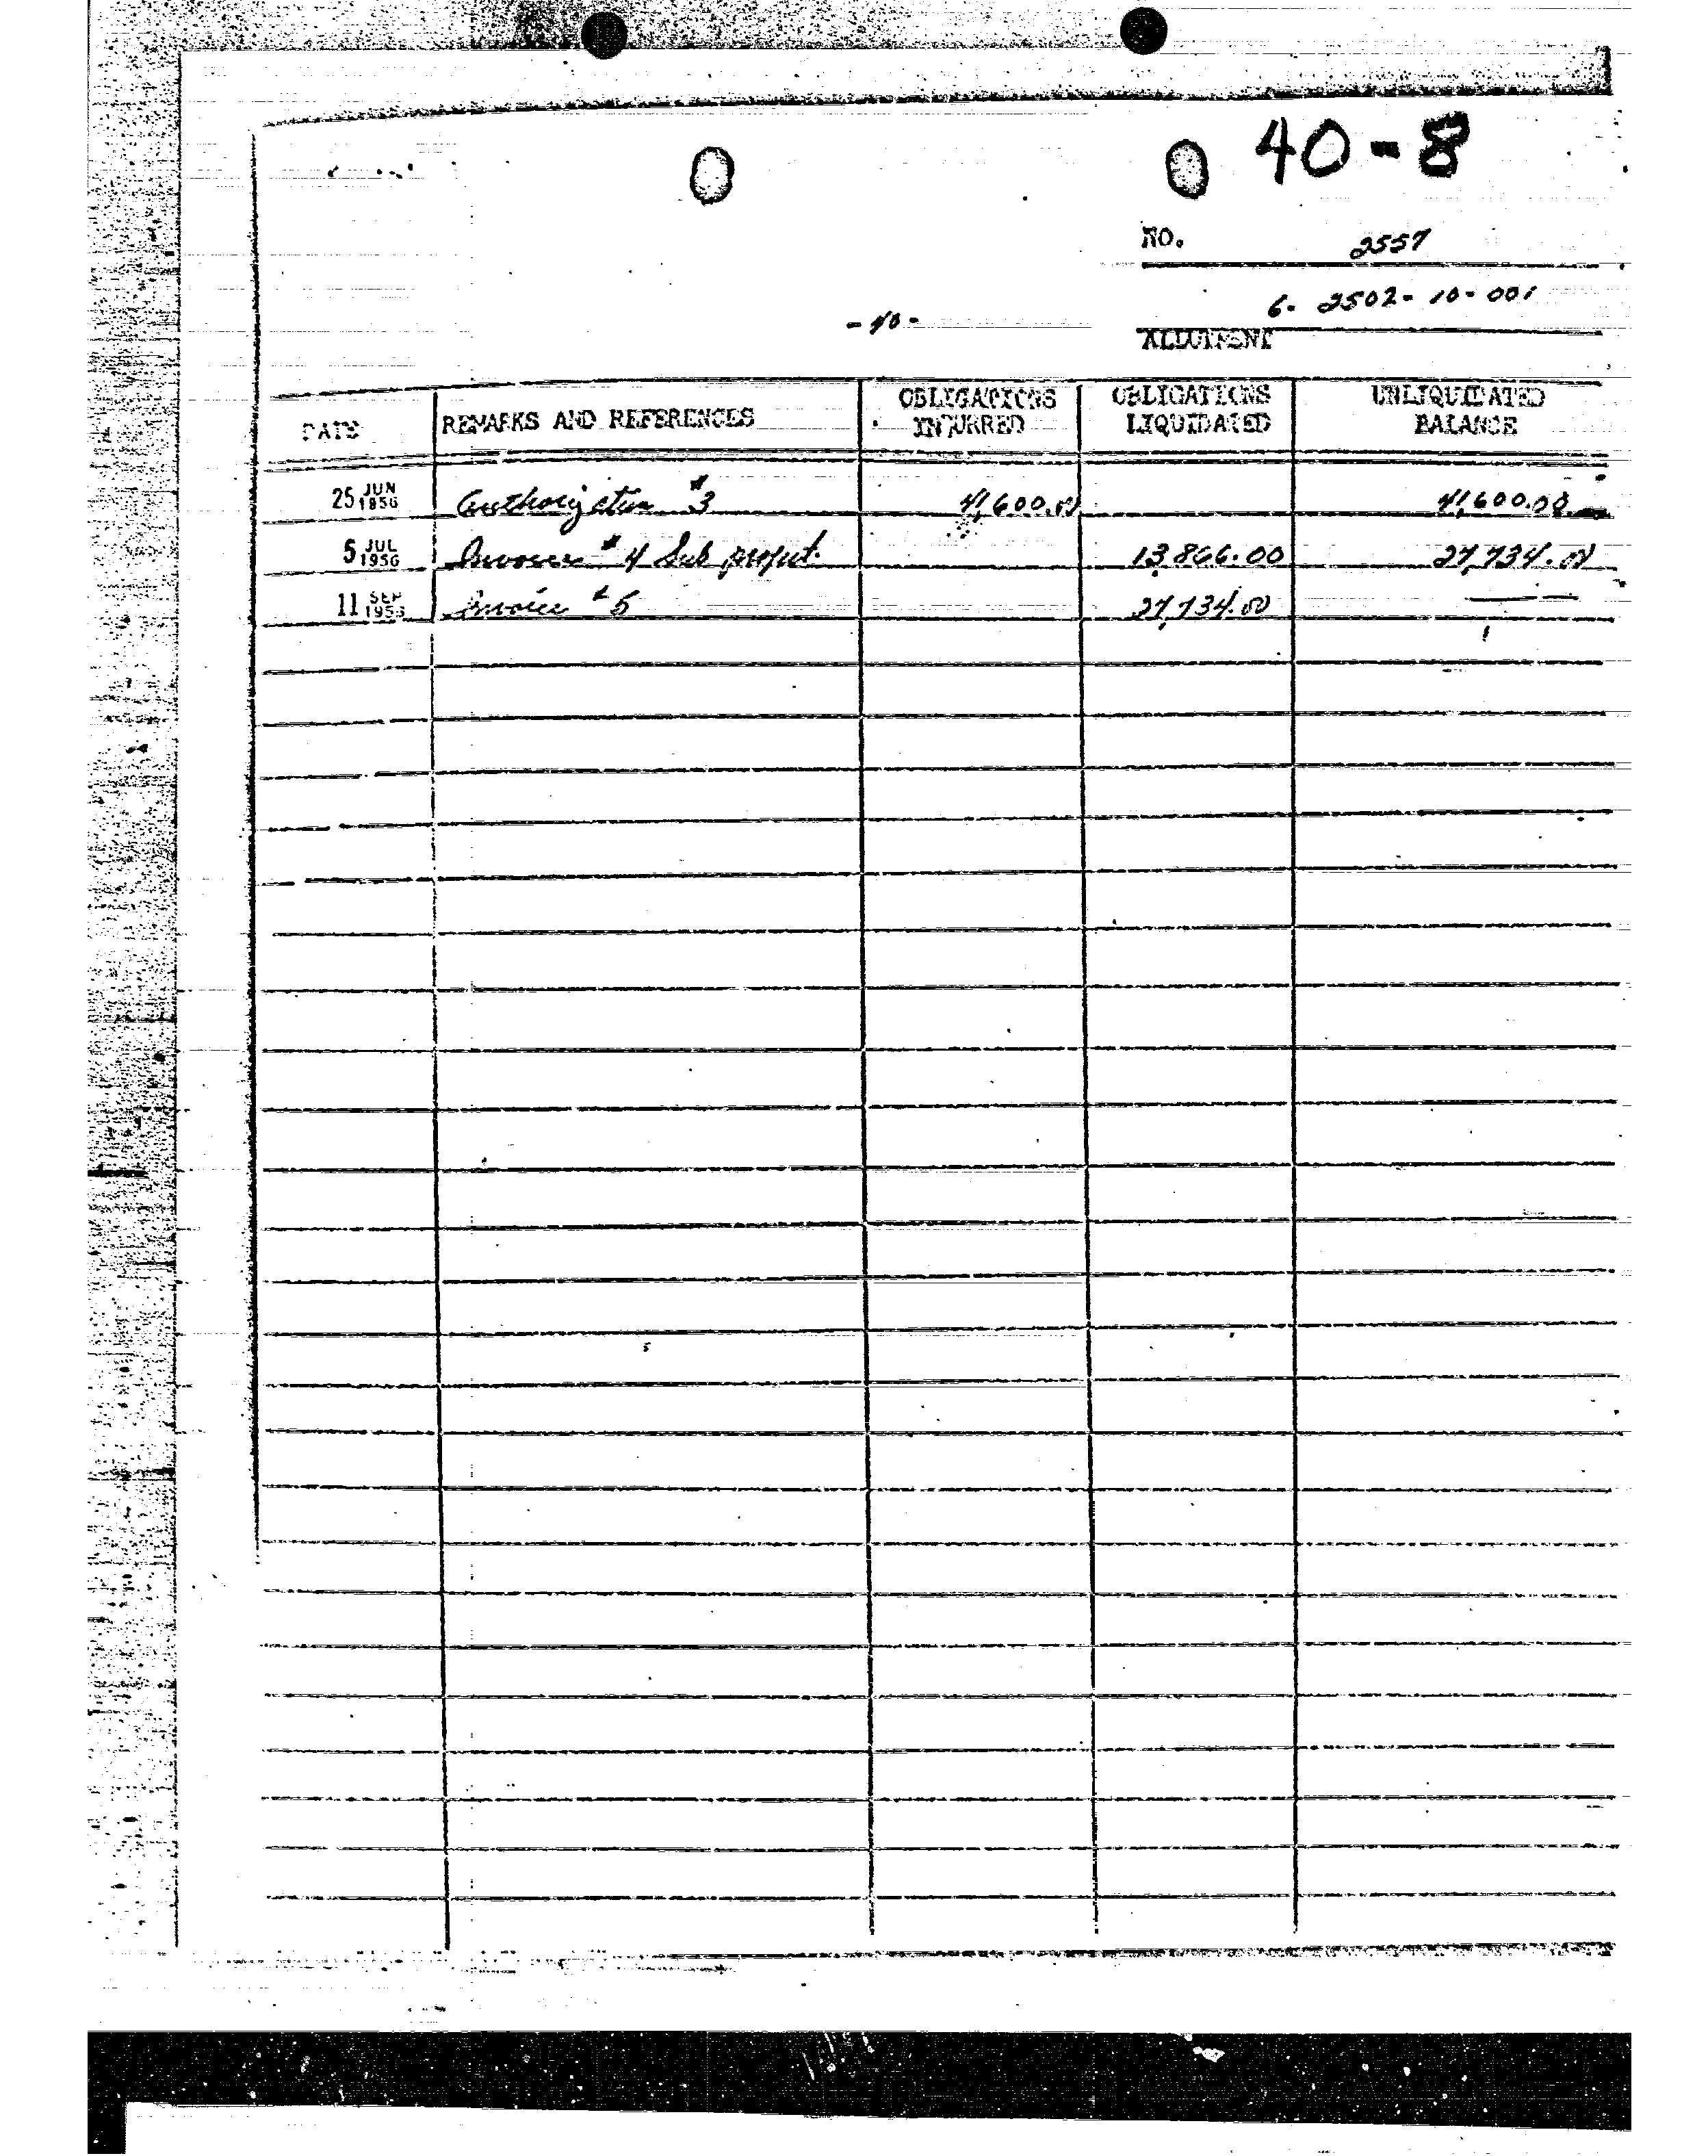 40-8
NO. 2557
6-2502-10-001
-40-
ALLOTMENT
DATE REMARKS AND REFERENCES OBLIGATIONS INCURRED OBLIGATIONS LIQUIDATED UNLIQUIDATED BALANCE
25 JUN 1956 Authorization #3 41,600.00 41,600.00
5 JUL 1956 Invoice #4 Sub projct. 13,866.00 27,734.00
11 SEP 1956 Invoice #5 27,734.00 —